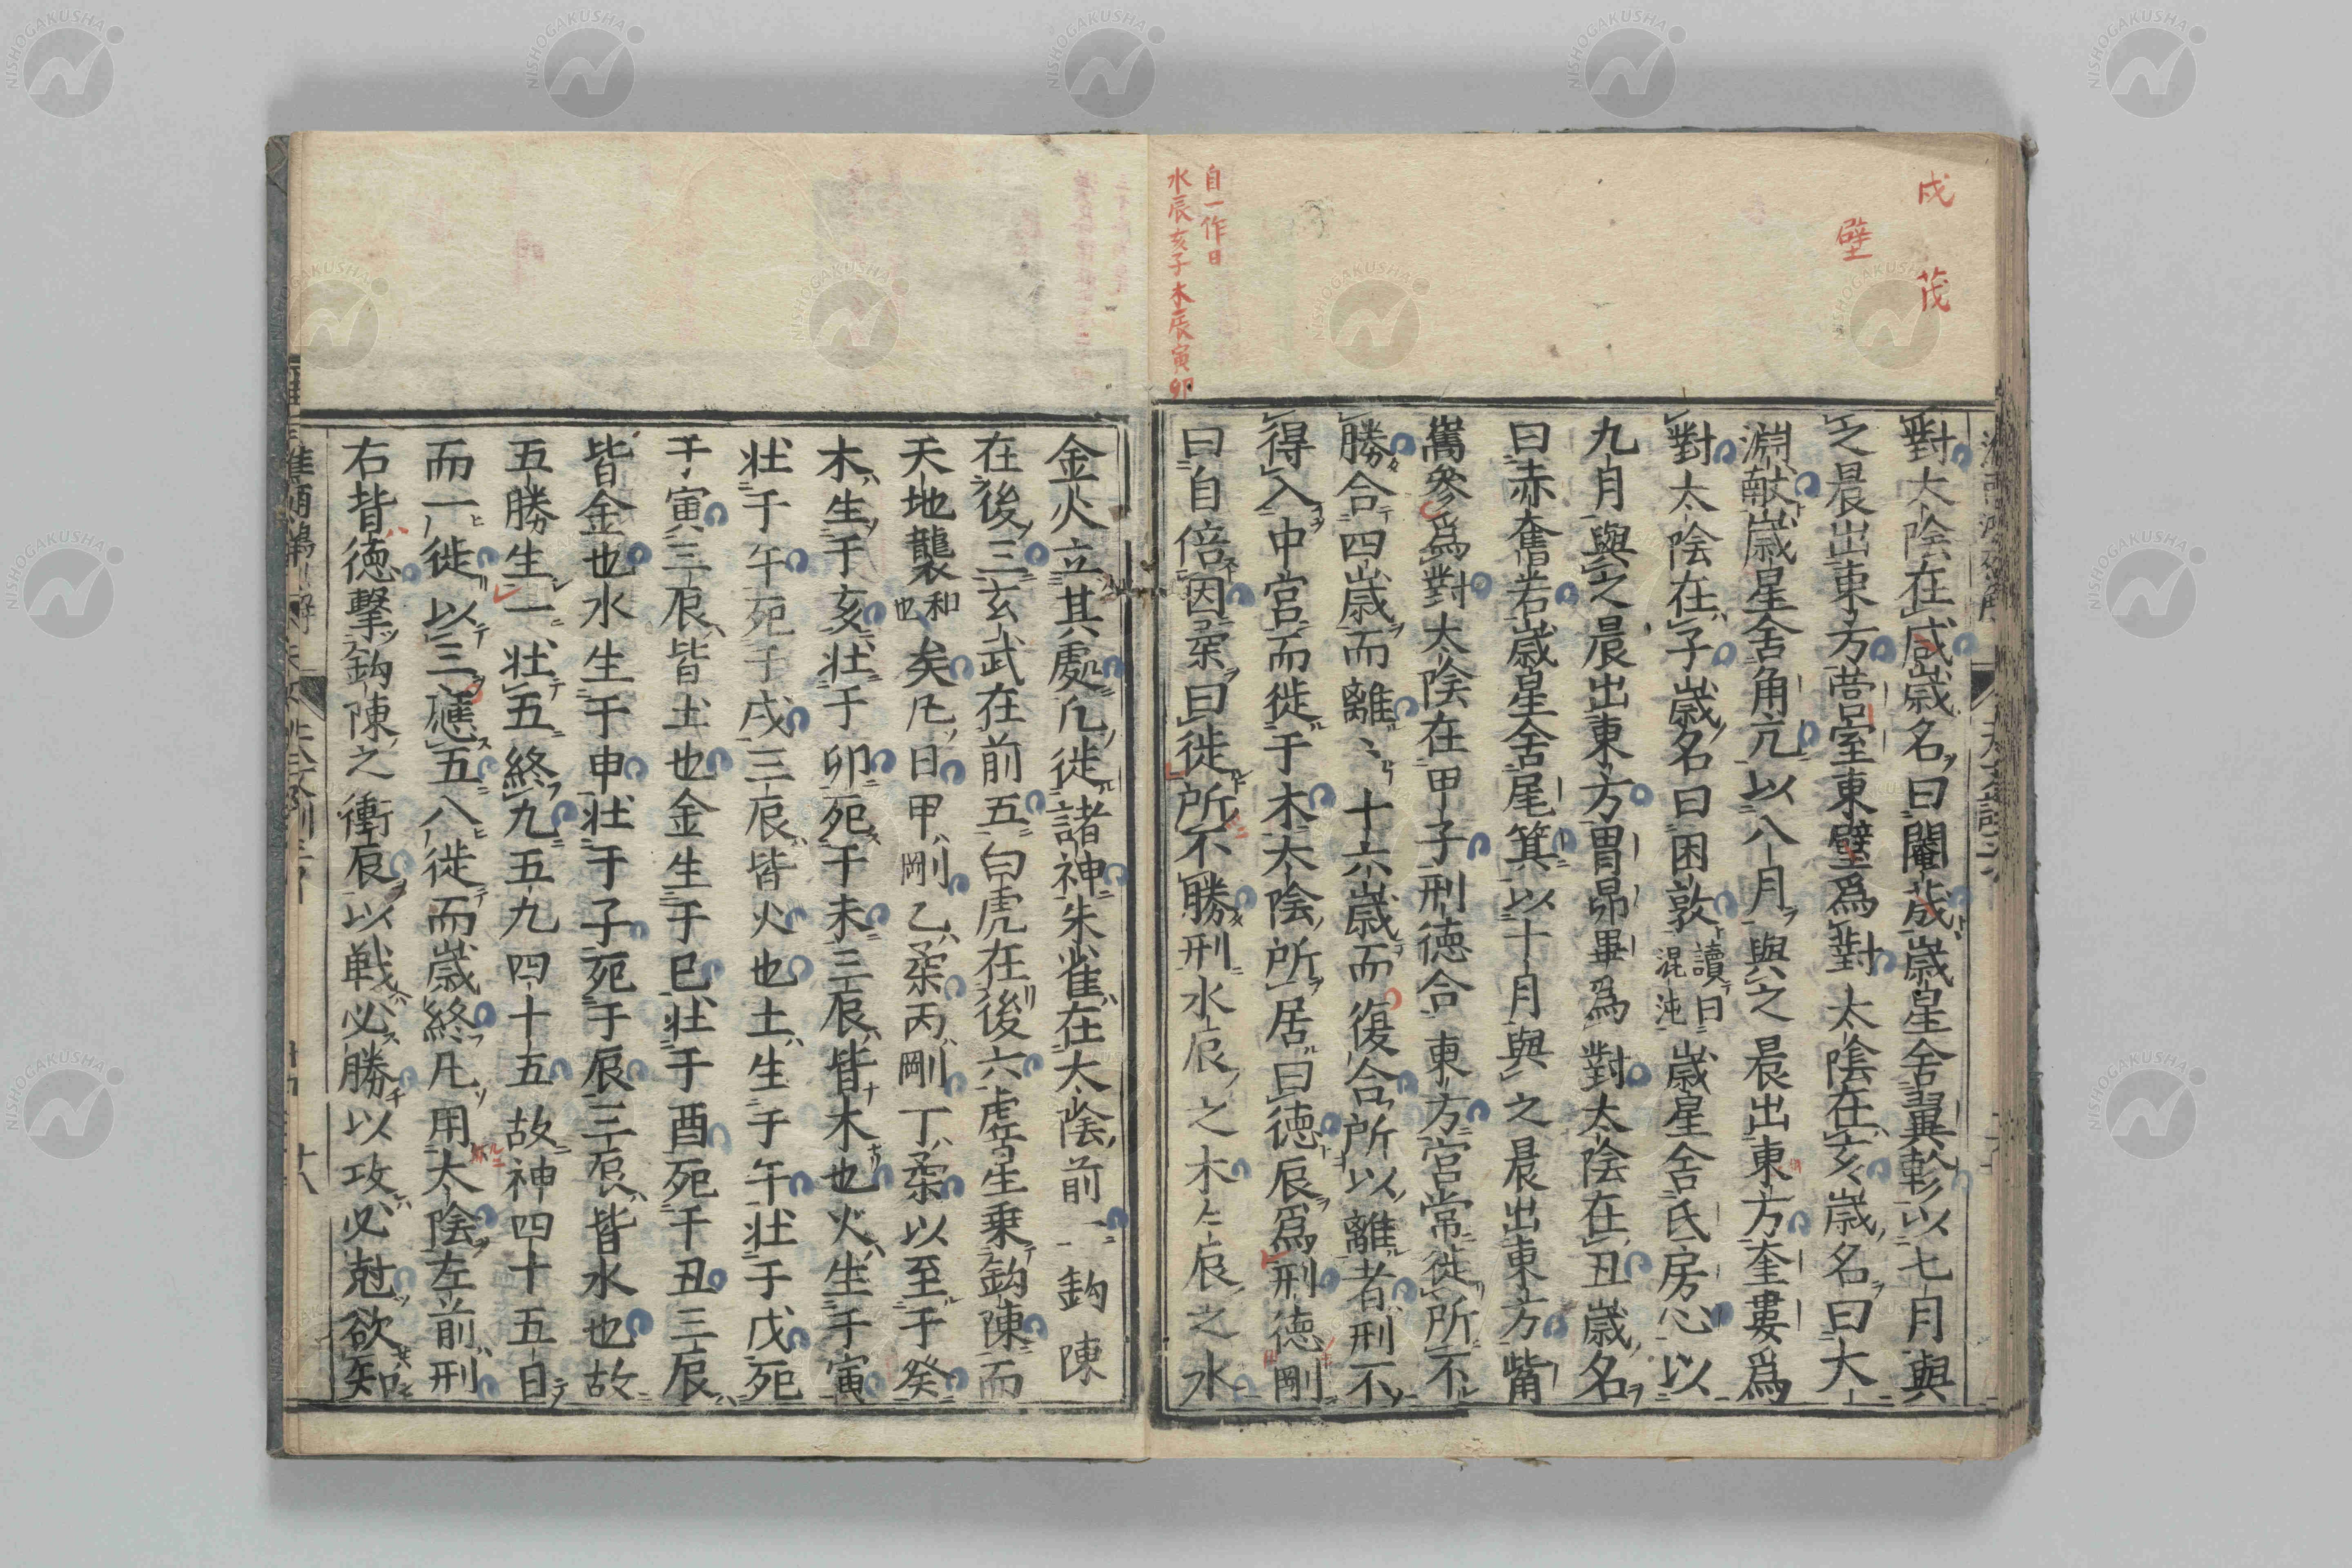 戌 茂
壁
自一作日
水辰亥子木辰寅卯
對太陰在戌歲名曰閹茂歲星舍翼軫以七月與
之晨出東方營室東壁爲對太陰在亥歲名曰大
淵献歲星舍角亢以八月與之晨出東方奎婁爲
對太陰在子歲名曰困敦讀曰混沌歲星舍氐房心以
九月與之晨出東方胃昴畢爲對太陰在丑歲名
曰赤奮若歲星舍尾箕以十月與之晨出東方觜
觿參爲對太陰在甲子刑德合東方宮常徙所不
勝合四歲而離〻十六歲而復合所以離者刑不
得入中宮而徙于木太陰所居曰德辰爲刑德剛
曰自倍因柔曰徙所不勝刑水辰之木〻辰之水
金火立其處凢徙諸神朱雀在太陰前一鈎陳
在後三玄武在前五白虎在後六虛星乗鈎陳而
天地襲和也矣凢日甲剛乙柔丙剛丁柔以至于癸
木生于亥壮于卯死于未三辰皆木也火生于寅
壮于午死于戌三辰皆火也土生于午壮于戌死
于寅三辰皆土也金生于巳壮于酉死于丑三辰
皆金也水生于申壮于子死于辰三辰皆水也故
五勝生一壮五終九五九四十五故神四十五日
而一徙以三應五八徙而歲終凢用太陰左前刑
右背德擊鈎陳之衝辰以戦必勝以攻必尅欲知